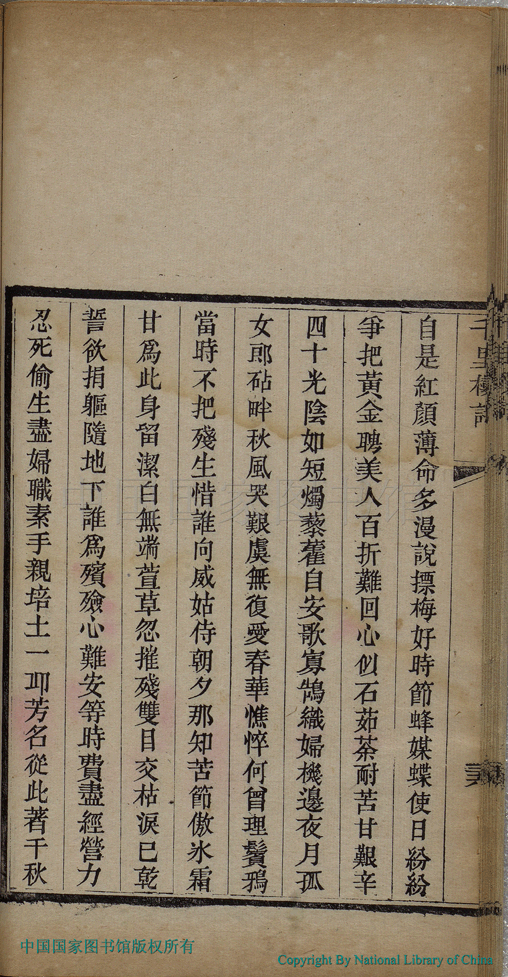 千里樓詩
自是紅顏薄命多漫說摽梅好時節蜂媒蝶使日紛紛
爭把黃金聘美人百折難回心似石茹荼耐苦甘艱辛
四十光陰如短燭藜藿自安歌寡鵠織婦機邊夜月孤
女郎砧畔秋風哭艱虞無復愛春華憔悴何曾理鬢鴉
當時不把殘生惜誰向威姑侍朝夕那知苦節傲冰霜
甘爲此身留潔白無端萱草忽摧殘雙目交枯淚已乾
誓欲捐軀隨地下誰爲殯殮心難安等時費盡經營力
忍死偷生盡婦職素手親培土一邱芳名從此著千秋
中国国家图书馆版权所有
Copyright By National Library of China